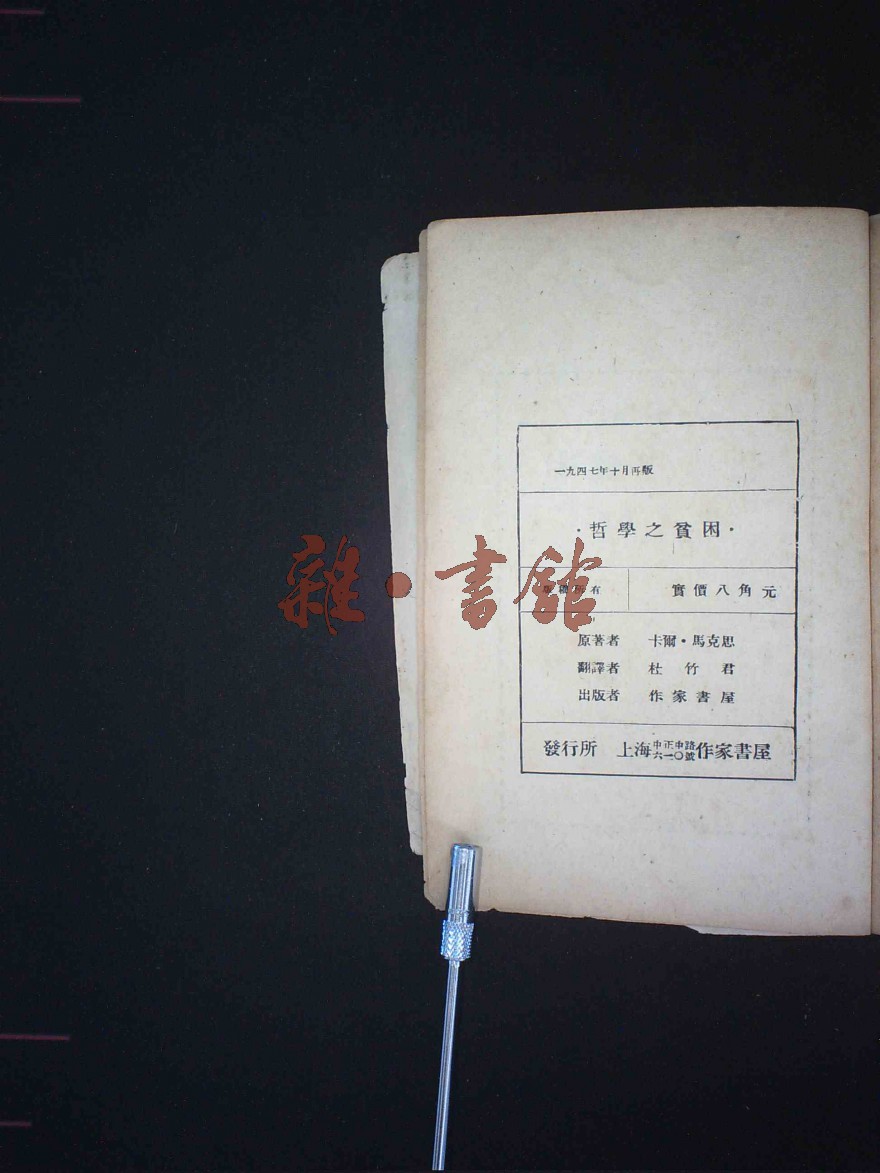 一九四七年十月再版
·哲學之貧困·
權所有 實價八角元
原著者 卡爾·馬克思
翻譯者 杜竹君
出版者 作家書屋
發行所 上海中正中路六一〇號作家書屋
雜·書館